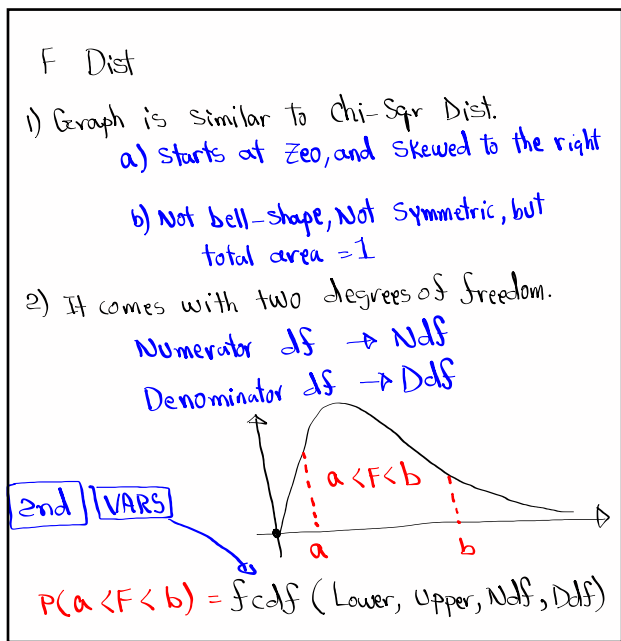 F Dist
1) Graph is similar to Chi-Sqr Dist.
a) Starts at Zeo, and Skewed to the right
b) Not bell-shape, Not Symmetric, but
total area = 1
2) It comes with two degrees of freedom.
Numerator df → Ndf
Denominator df → Ddf
a < F < b
2nd VARS
a b
P(a < F < b) = fcdf (Lower, Upper, Ndf, Ddf)